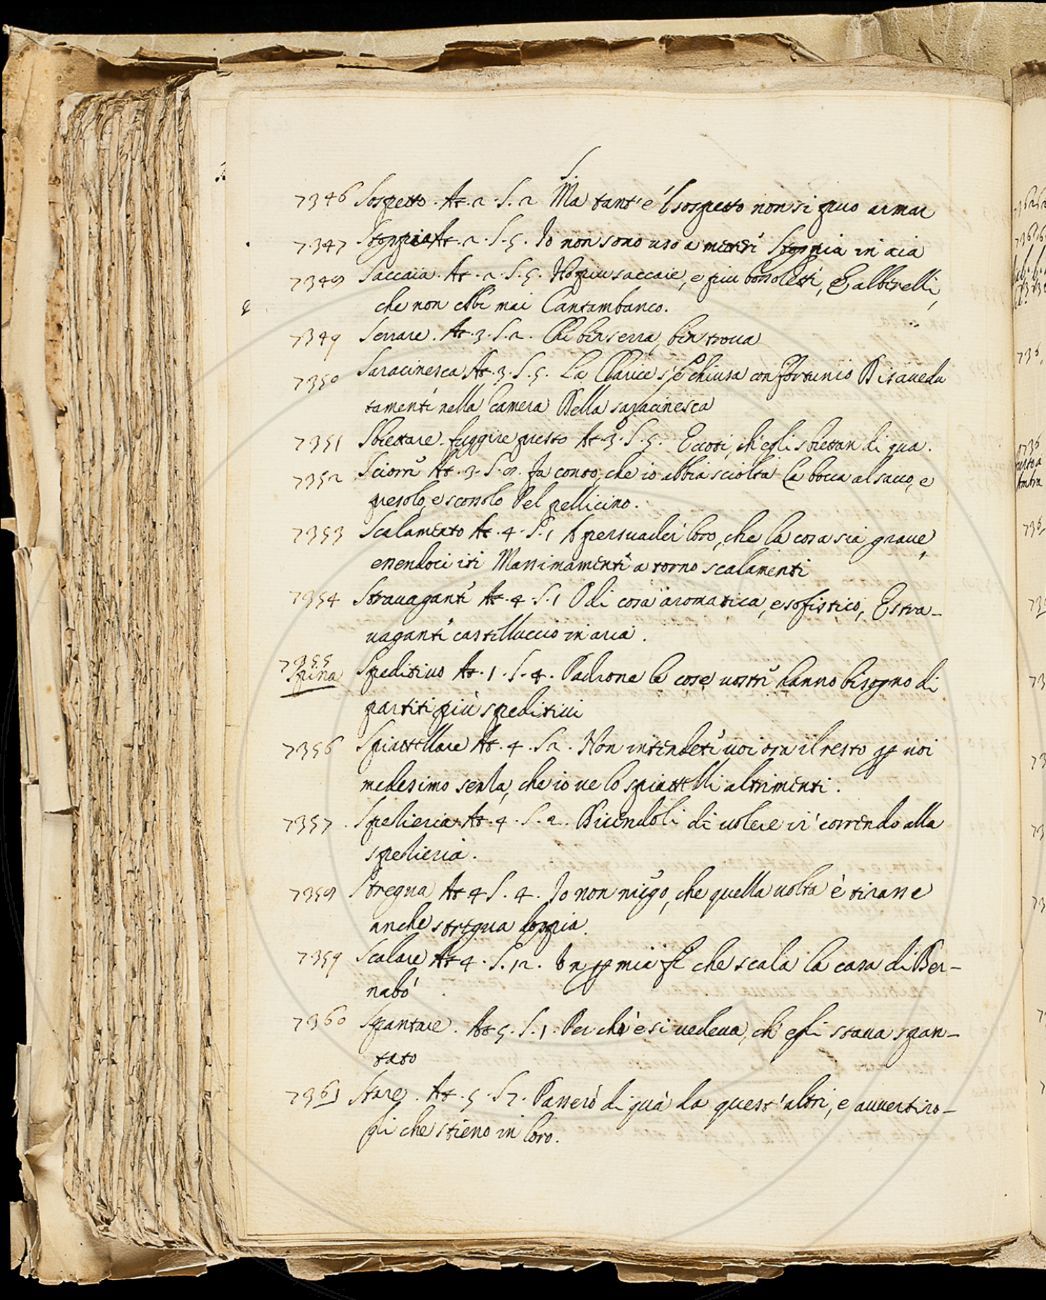 S.
7346 Sospetto. At. 2. S. 2 Ma tant'è 'l sospetto non si può armar
7347 Stoppia At. 2. S. 5. Io non sono uso a metter stoppia in aia
7348 Saccaia. At. 2. S. 5. Ho più saccaie, e più bossoletti, e alberelli,
che non ebbe mai Cantambanco.
7349 Serrare. At. 3. S. 2. Chi ben serra, ben trova
7350 Saracinesca At. 3. S. 5. La Clarice s'è chiusa con Fortunio disaveda
tamente nella Camera della saracinesca
7351 Sbiettare. fuggire presto At. 3. S. 5. Eccoti, ch'egli sbiettan di qua.
7352 At. 3. S. Fa conto che io abbia sciolta la bocca al sacco, e
presolo, e scossolo pel pellicino.
7353 Scalamento At. 4. S. 1 A persuader loro, che la cosa sia grave,
essendoci iti Massimamente a torno scalamenti
7354 Stravagante At. 4. S. 1 O di cosa aromatica, e sofistico, e stra-
vagante castelluccio in aria.
7355
Spina Speditivo At. 1. S. 4. Padrone le cose vostre hanno bisogno di
partiti più speditivi
7356 Spiattellare At. 4. S. 2. Non intendete voi ora il resto per voi
medesimo senza, che io ve lo spiattelli altrimenti.
7357. Spezieria At. 4. S. 2. Dicendoli di volere ir correndo alla
spezieria.
7358 Stregua At. 4 S. 4. Io non niego, che quella volta è tirasse
anche stregua doppia.
7359 Scalare At. 4. S. 12. per mia fe che scala la casa di Ber-
nabò
7360 Spantare. At. 5. S. 1. Perchè e si vedeva, ch'egli stava span-
tato
7361 Stare. At. 5. S. 7. Passerò di quà da quest'altri, e avvertiro-
gli che stieno in loro.